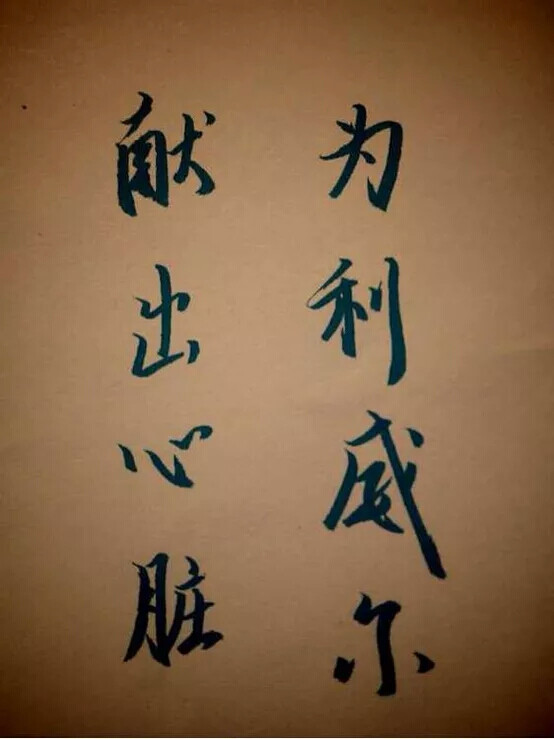 为利威尔
献出心脏